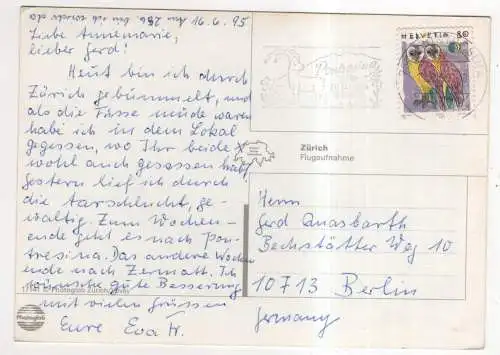 Am 28b. bin ich wieder da
16.6.95
Liebe Annemarie,
lieber Gerd!
Heut bin ich durch
Zürich gebummelt, und
als die Füsse müde waren
habe ich in dem Lokal
gegessen, wo Ihr beide
wohl auch gesessen habt
gestern lief ich durch
die Aarschlucht, ge-
waltig. Zum Wochen-
ende geht es nach Pon-
tresina. Das andere Wochen
ende nach Zermatt. Ich
wünsche gute Besserung
mit vielen Grüssen
Eure Eva H.
Photoglob Zürich
Photoglob
HELVETIA 80
Pontresina
Zürich
Flugaufnahme
Herrn
Gerd Quasbarth
Bechstätter Weg 10
10713 Berlin
Germany